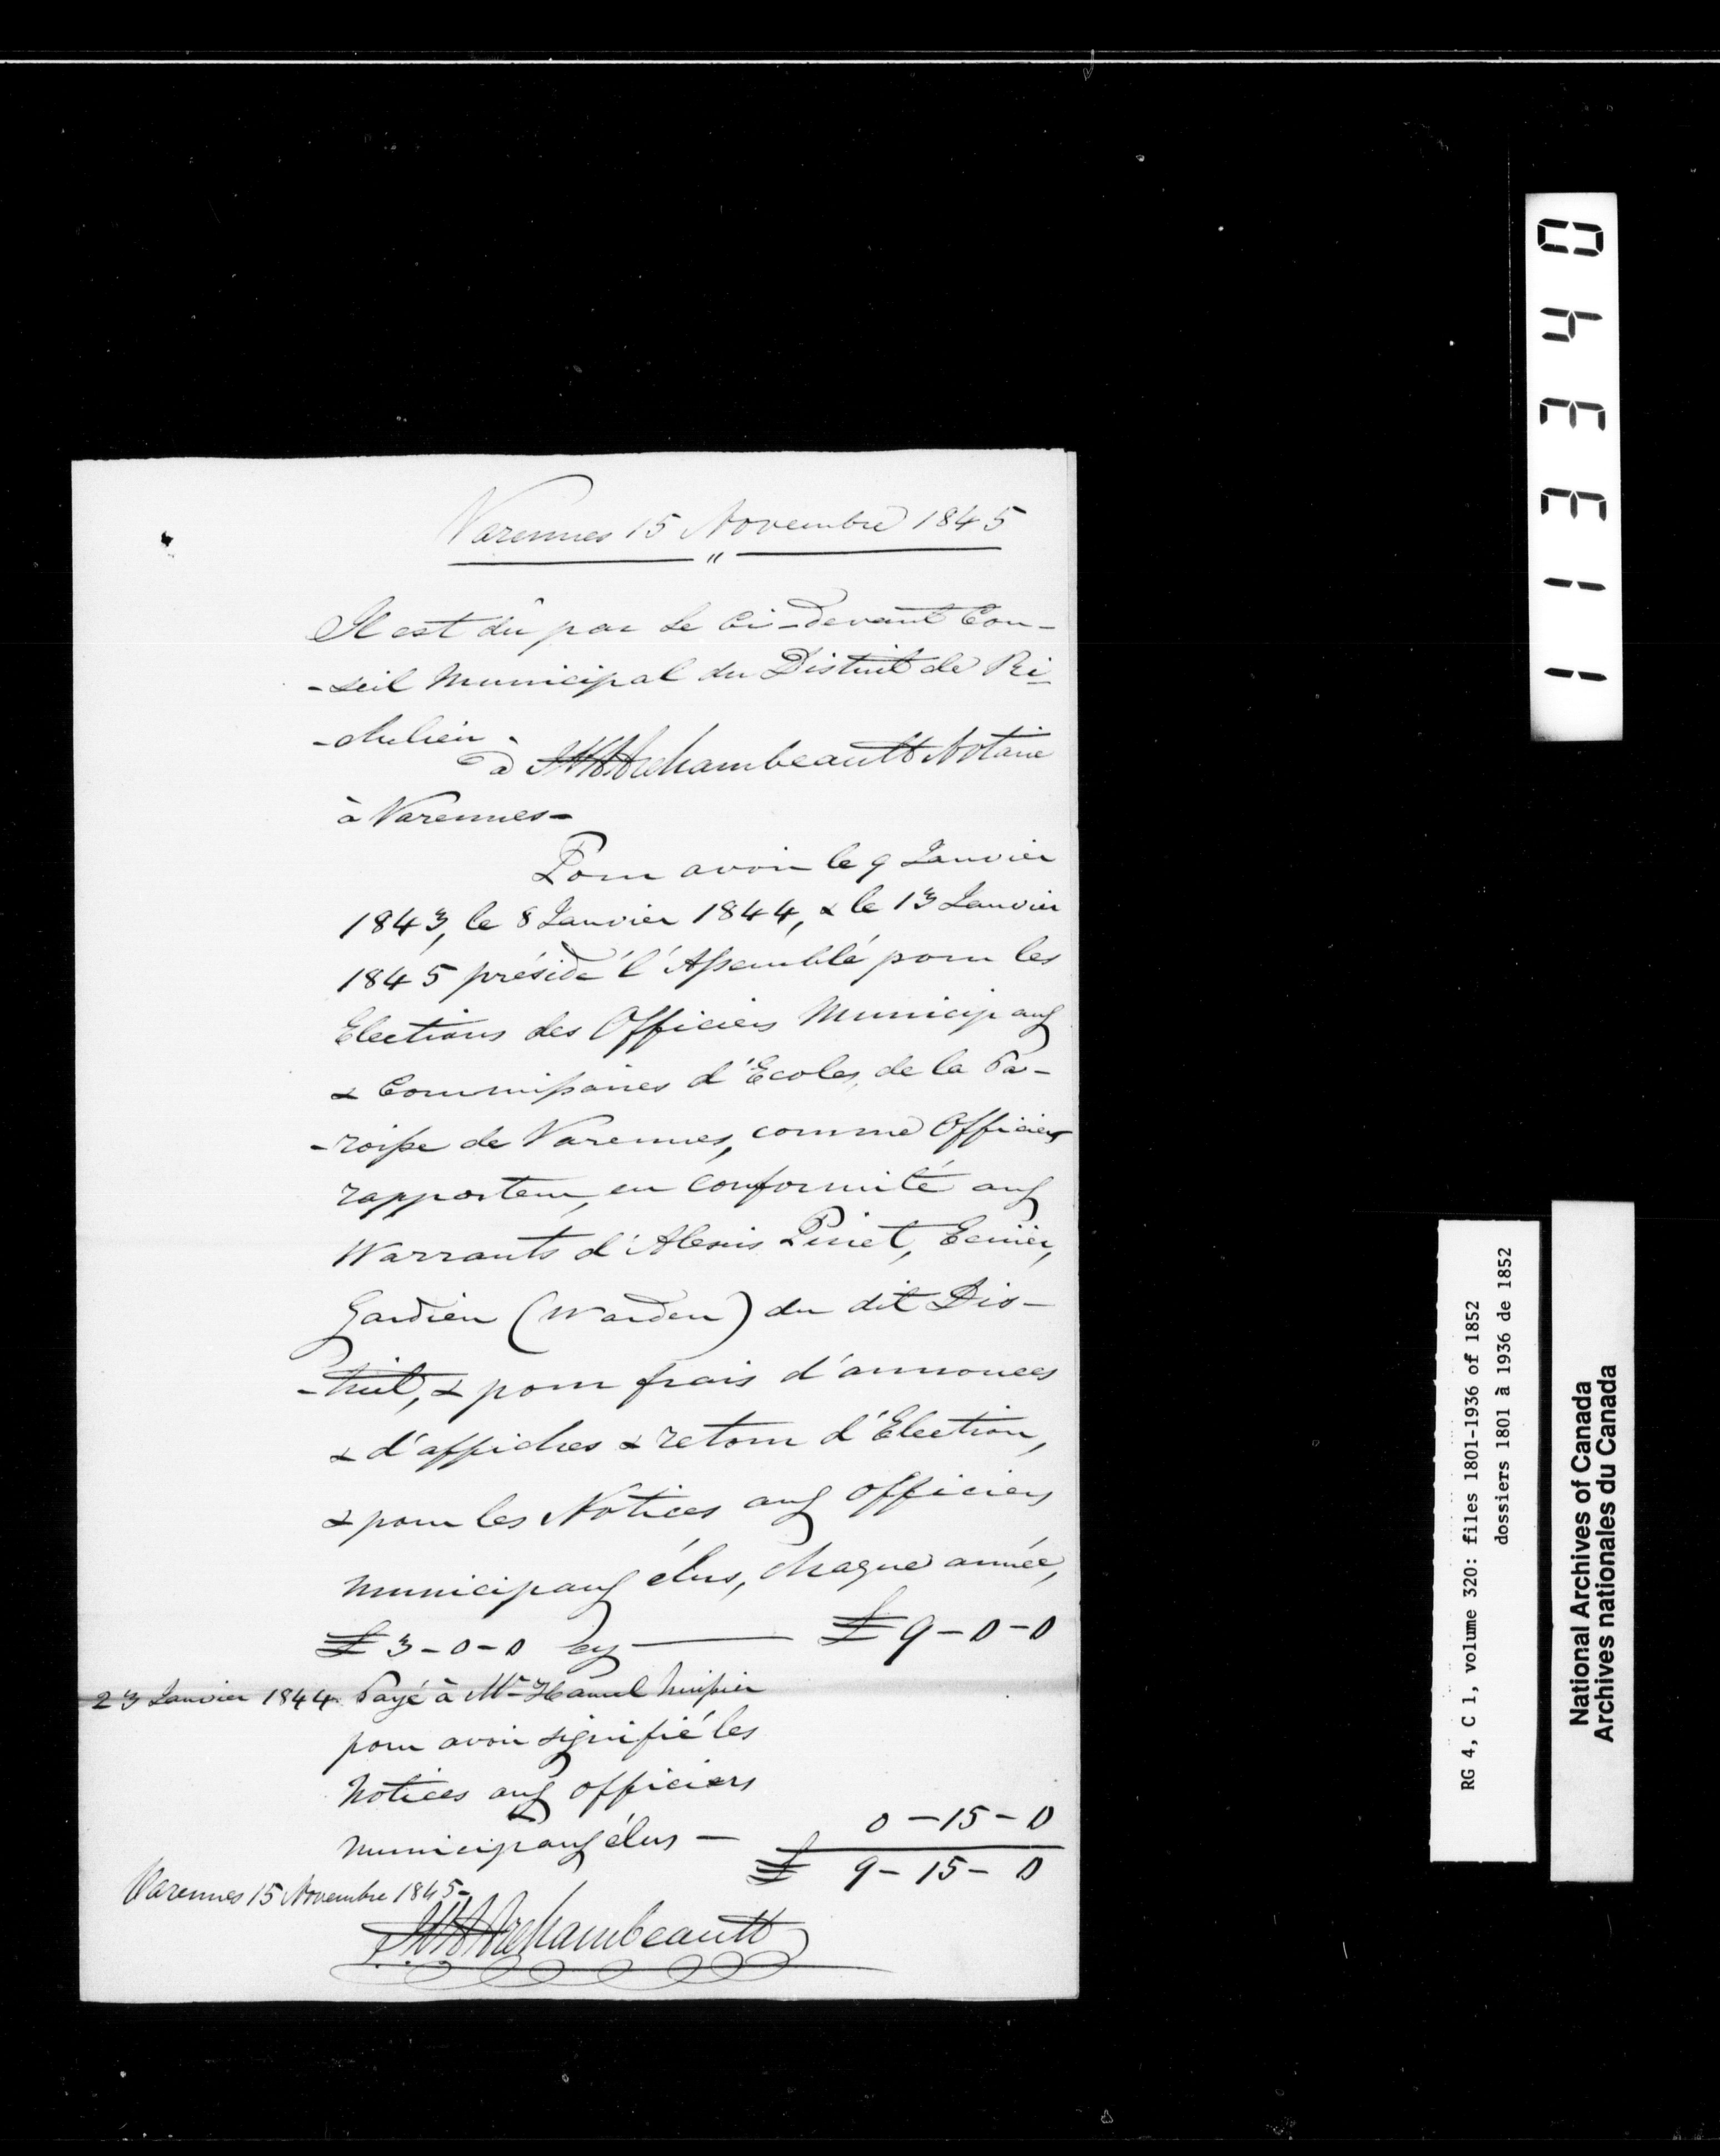 Varennes 15 Novembre 1845
"
Il est dû par le Ci-devant Con-
-seil Municipal du District de Ri-
-chelieu
à JNA Archambeault Notaire
à Varennes-
Pour avoir le 9 Janvier
1843, le 8 Janvier 1844, & le 13 Janvier
1845 présidé l'Assemblé pour les
Elections des Officiers Municipaux
& Commissaires d'Ecoles, de la Pa-
-roisse de Varennes, comme Officier
rapporteur, en conformité aux
Warrants d'Alexis Pinet, Ecuïer,
Gardien (Warden) du dit Dis-
-trict, & pour frais d'annonces
& d'affiches & retour d'Election,
& pour les Notices aux officiers
municipaux élus, chaque année,
£ 3-0-0 cy — £ 9-0-0
23 Janvier 1844. Payé à Mr Hamel huissier
pour avoir signifié les
Notices aux officiers
municipaux élus — 0-15-0
£ 9-15-0
Varennes 15 Novembre 1845-
JNA Archambeault
113340
RG 4, C 1, volume 320: files 1801-1936 of 1852
dossiers 1801 à 1936 de 1852
National Archives of Canada
Archives nationales du Canada